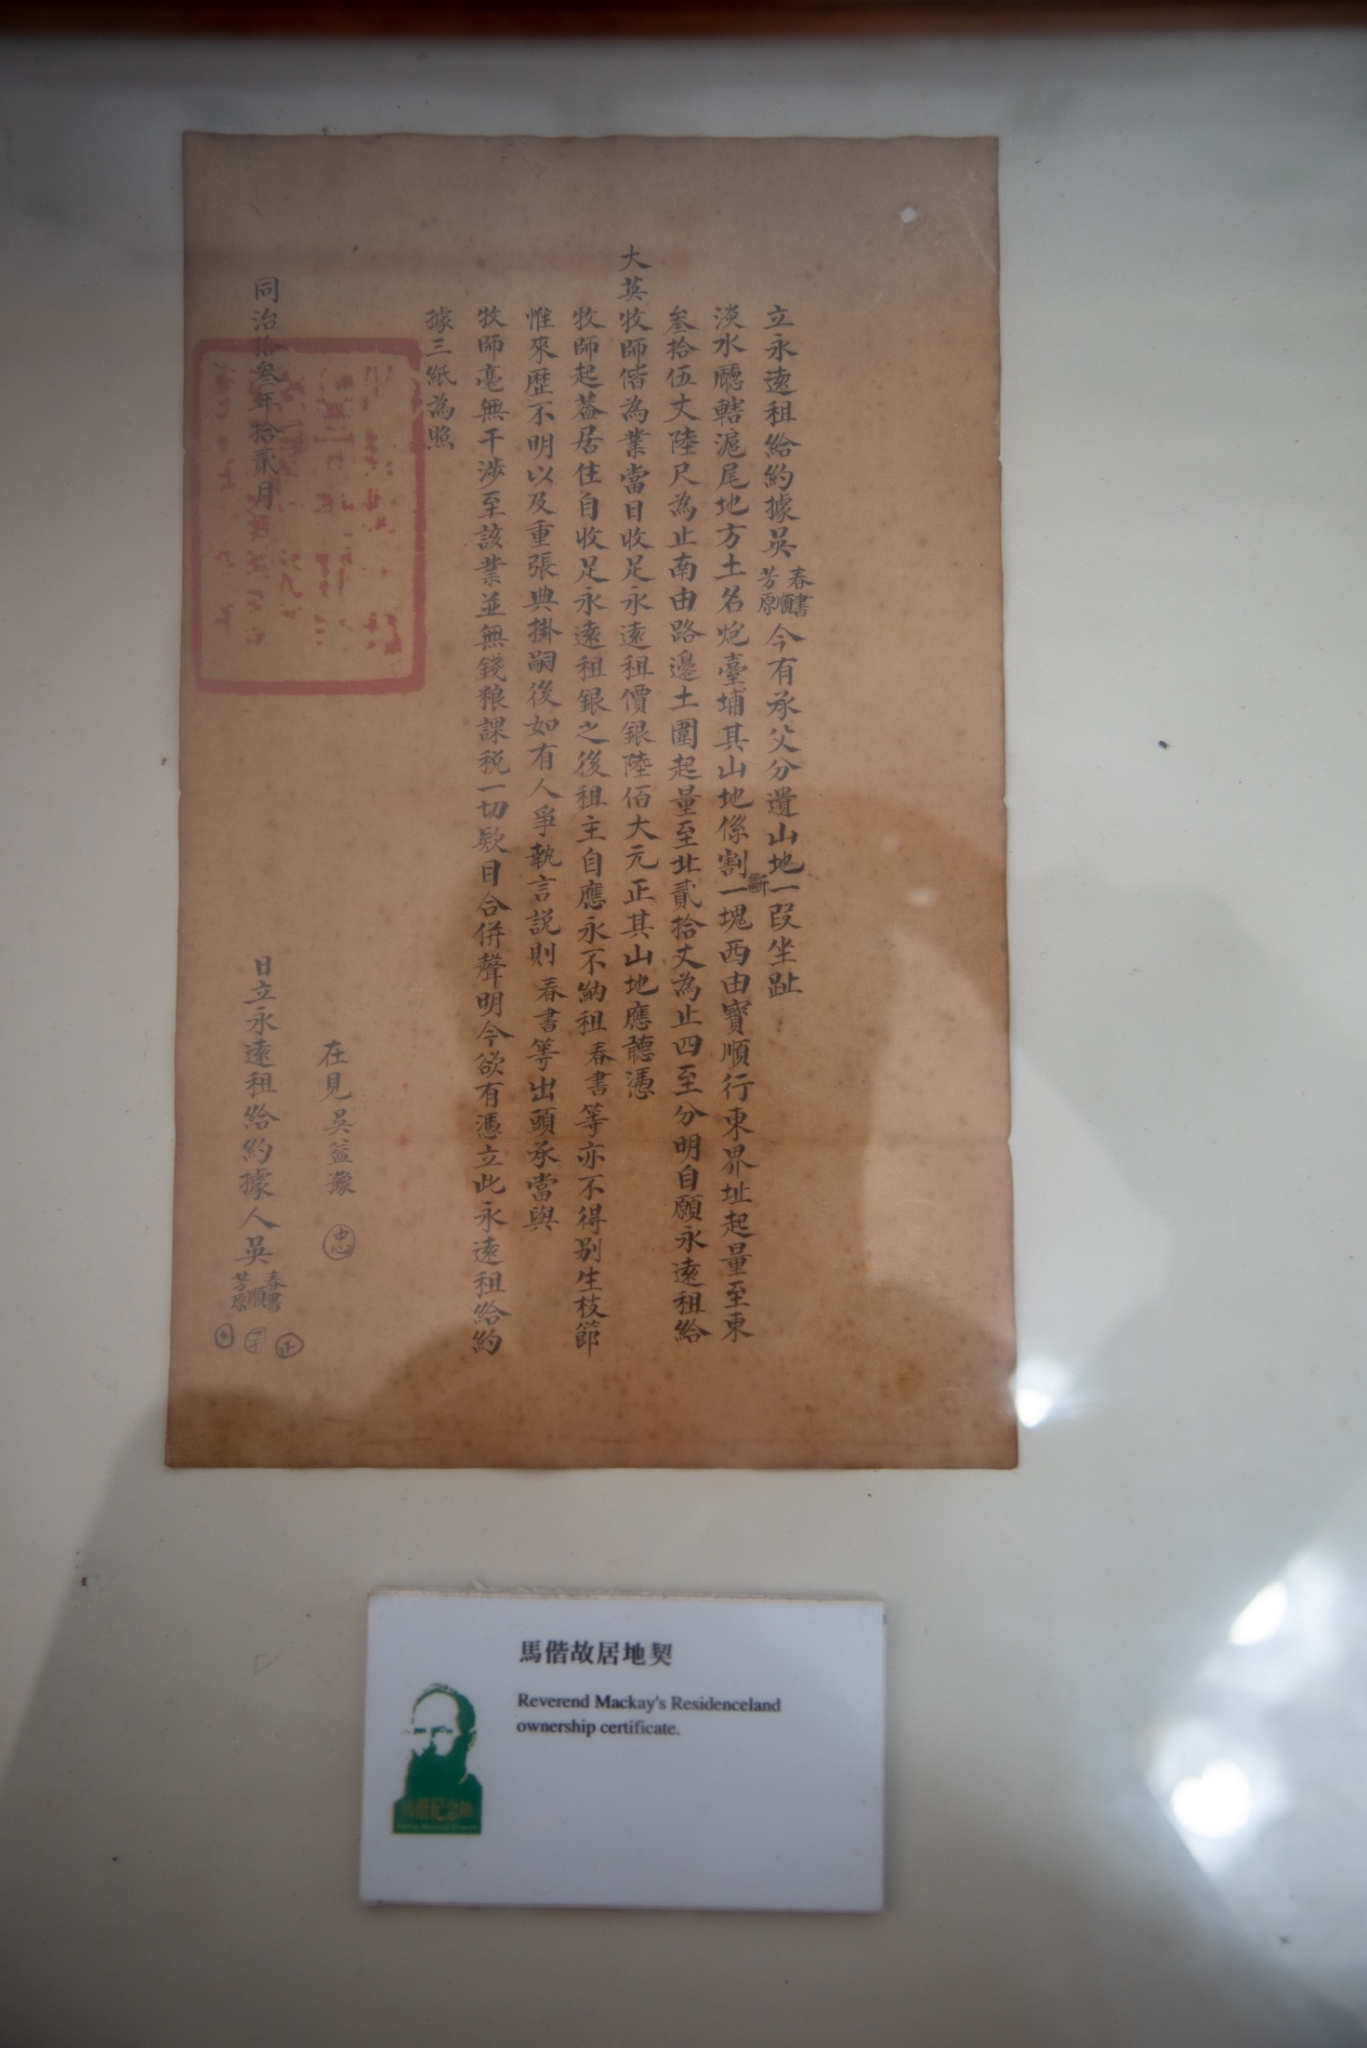 立永遠租給約據吳春書順芳原今有承父分遺山地一段坐趾
淡水廳轄滬尾地方土名炮臺埔其山地係割斷一塊西由寶順行東界址起量至東
叁拾伍丈陸尺為止南由路邊土圍起量至北貳拾丈為止四至分明自願永遠租給
大英牧師偕為業當日收足永遠租價銀陸佰大元正其山地應聽憑
牧師起蓋居住自收足永遠租銀之後租主自應永不納租春書等亦不得別生枝節
惟來歷不明以及重張典掛嗣後如有人爭執言説則春書等出頭承當與
牧師毫無干涉至該業並無錢粮課税一切欵目合併聲明今欲有憑立此永遠租給約
據三紙為照
在見吳益豫 忠
同治拾叁年拾貳月 日立永遠租給約據人吳春書順芳原 正
馬偕故居地契
Reverend Mackay's Residenceland
ownership certificate.
馬偕紀念館